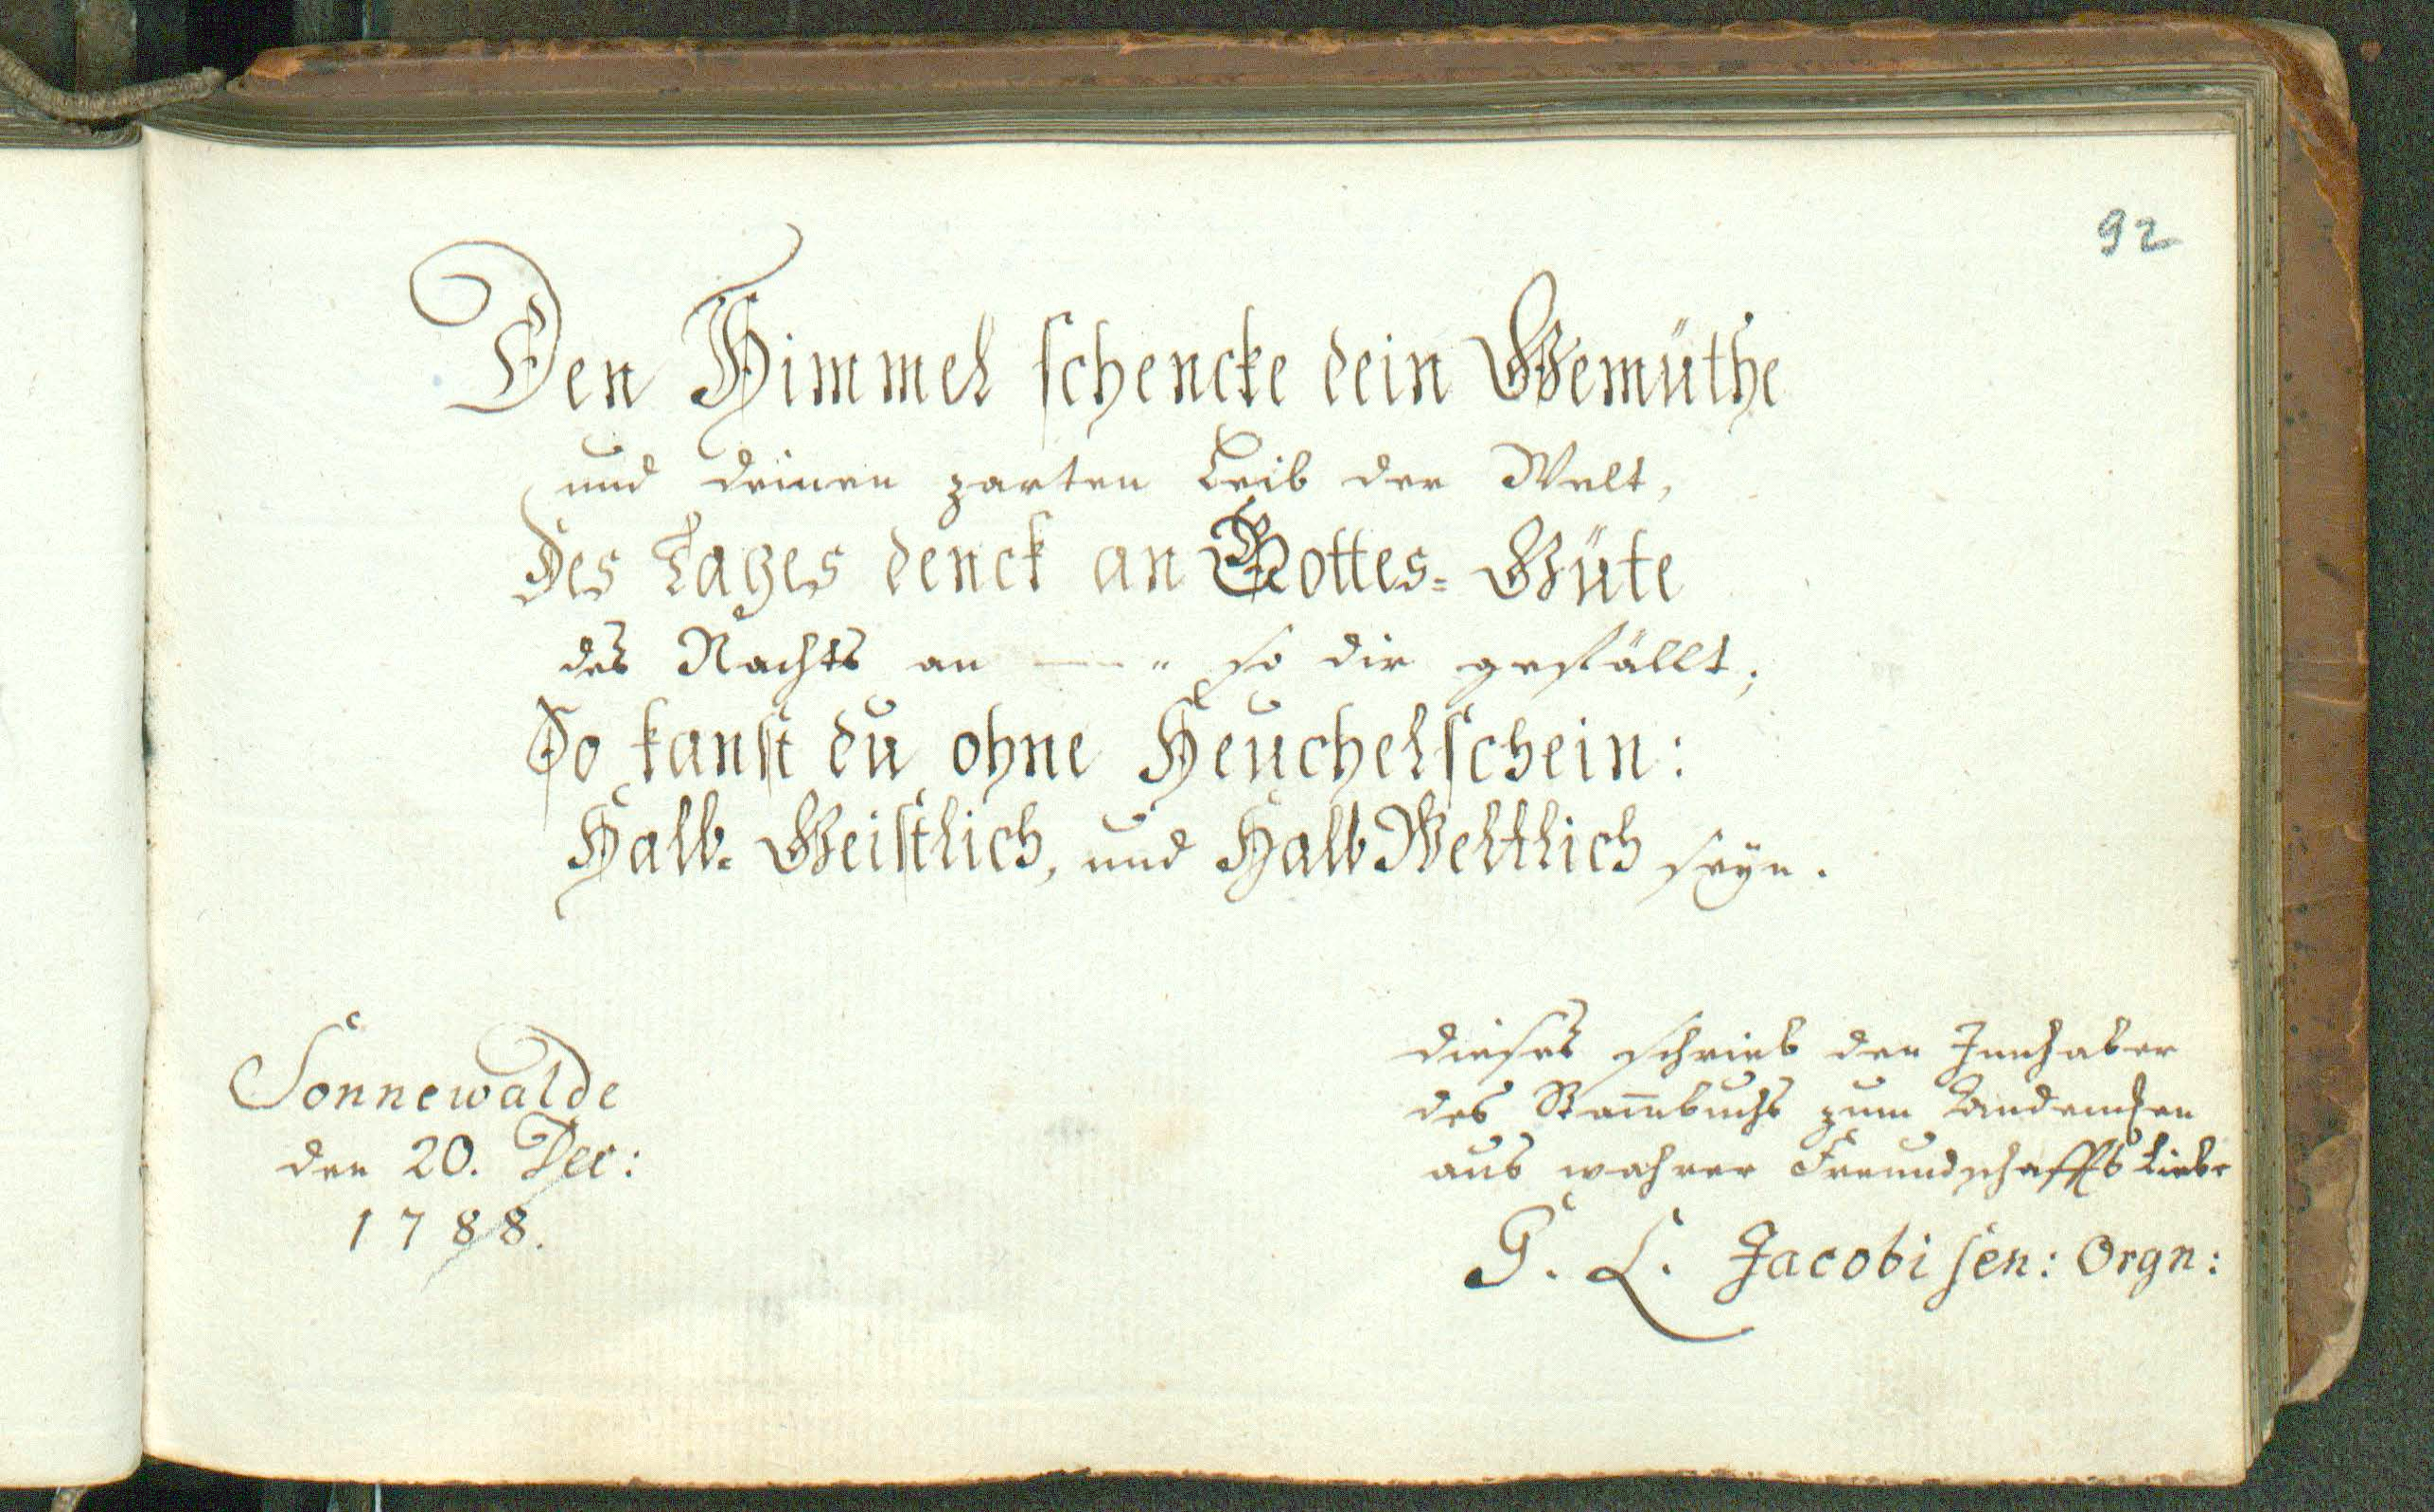 92
Den Himmel schencke dein Gemüthe
und deinen zarten Leib der Welt,
Des Tages denck an Gottes- Güte
des Nachts an —— " so dir gefällt;
So kanst du ohne Heuchelschein:
Halb- Geistlich, und Halb Weltlich seyn.
Sonnewalde
den 20. Dec:
1788.
dieses schrieb den Innhaber
des Stam̅buchs zum Andencken
aus wahrer Freundschaffts Liebe
G. L. Jacobi sen: Orgn: